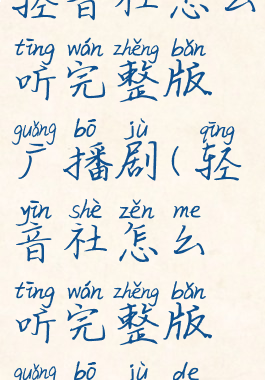 轻音社怎么
tīng wán zhěng bǎn
听完整版
guǎng bō jù qīng
广播剧(轻
yīn shè zěn me
音社怎么
tīng wán zhěng bǎn
听完整版
guǎng bō jù de